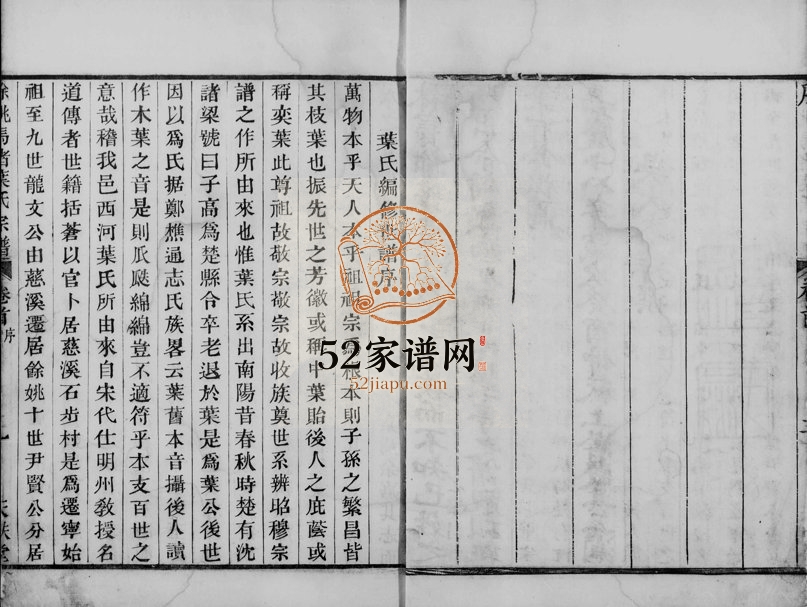 葉氏編修世譜序
萬物本乎天人本乎祖祖宗根本則子孫之繁昌皆
其枝葉也振先世之芳徽或稱中葉貽後人之庇蔭或
稱奕葉此尊祖故敬宗敬宗故收族奠世系辨昭穆宗
譜之作所由來也惟葉氏系出南陽昔春秋時楚有沈
諸梁號曰子高為楚縣令卒老退於葉是為葉公後世
因以為氏据鄭樵通志氏族畧云葉舊本音攝後人讀
作木葉之音是則瓜瓞綿綿豈不適符乎本支百世之
意哉稽我邑西河葉氏所由來自宋代仕明州教授名
道傳者世籍括蒼以官卜居慈溪石步村是為遷寧始
祖至九世龍文公由慈溪遷居餘姚十世尹賢公分居
餘姚馬渚葉氏宗譜
卷首
序
52家谱网
52jiapu.com